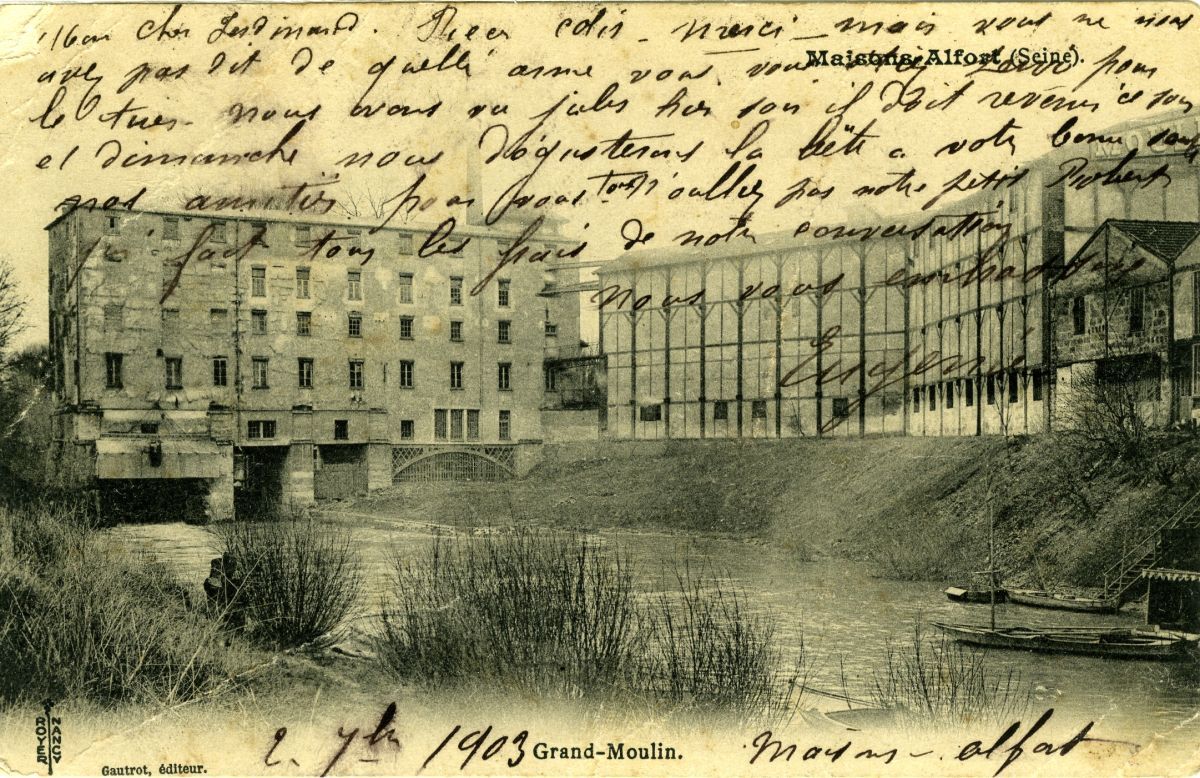 Mon cher Ferdinand. Reçu colis - merci - mais vous ne nous
Maisons-Alfort (Seine).
avez pas dit de quelle arme vous vous êtes servi pour
le tuer. nous avons vu jules hier soir il doit revenir ce soir
et dimanche nous dégusterons la bête a votre bonne santé
nos amitiés pour vous tous n'oubliez pas notre petit Robert
j'ai fait tous les frais de notre conversation
nous vous embrassons
Eugénie
ROYER
NANCY
2 7bre 1903
Grand-Moulin.
Maisons-alfort
Gautrot, éditeur.